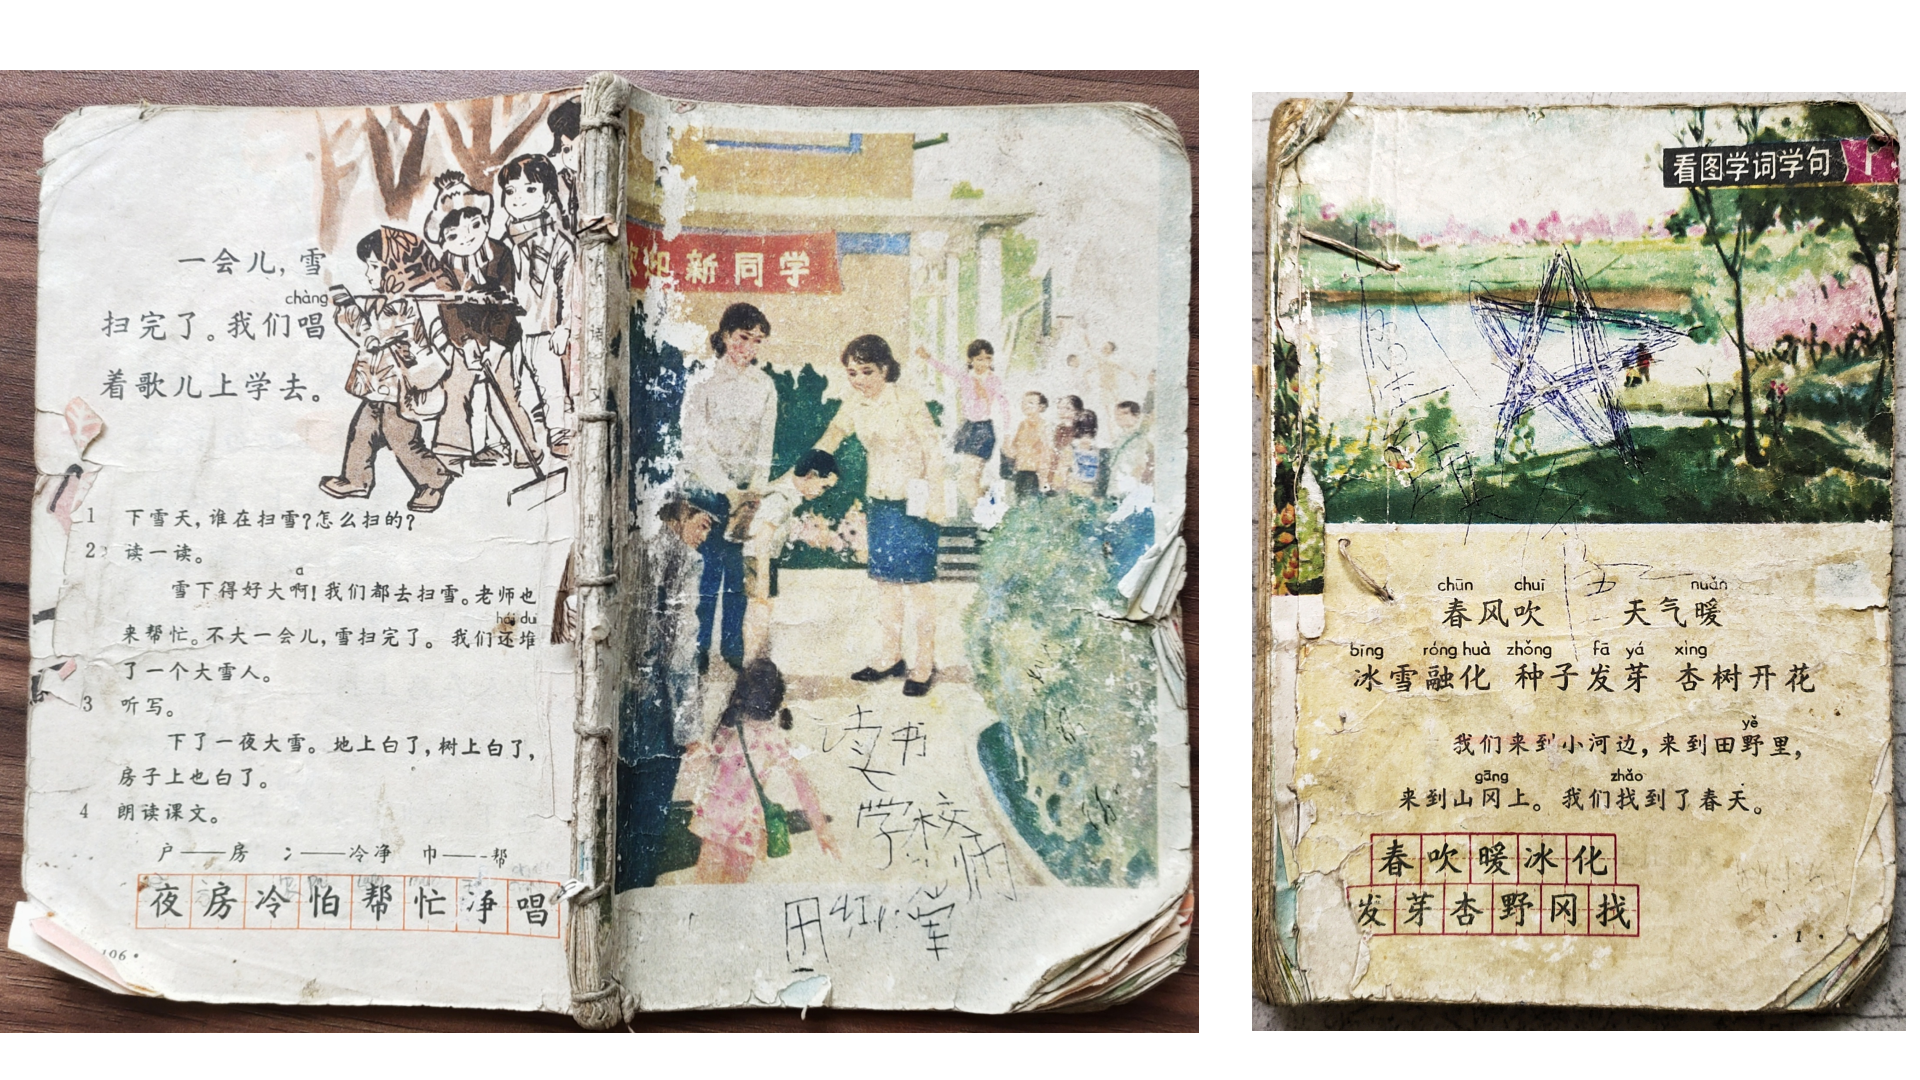 一会儿,雪
chàng
扫完了。我们唱
着歌儿上学去。
1 下雪天,谁在扫雪?怎么扫的?
2 读一读。
ɑ
雪下得好大啊!我们都去扫雪。老师也
hái duī
来帮忙。不大一会儿,雪扫完了。我们还堆
了一个大雪人。
3 听写。
下了一夜大雪。地上白了,树上白了,
房子上也白了。
4 朗读课文。
户——房 冫——冷净 巾——帮
夜房冷怕帮忙净唱
106
欢迎新同学
读书
学校
看图学词学句 1
chūn chuī nuǎn
春风吹 天气暖
bīng róng huà zhǒng fā yá xìng
冰雪融化 种子发芽 杏树开花
yě
我们来到小河边,来到田野里,
gāng zhǎo
来到山冈上。我们找到了春天。
春吹暖冰化
发芽杏野冈找
· 1 ·